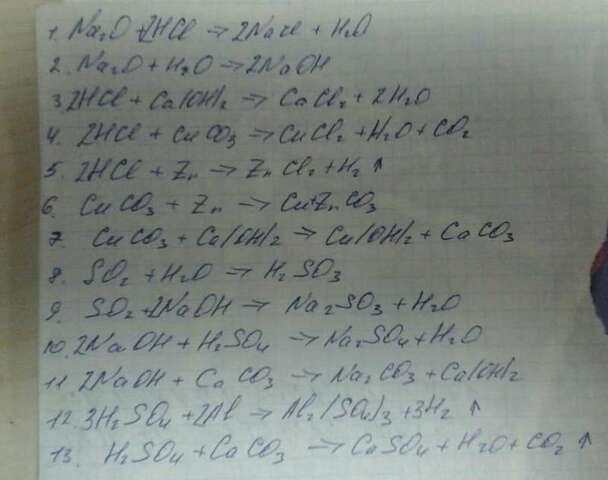 1. Na₂O + 2HCl → 2NaCl + H₂O
2. Na₂O + H₂O → 2NaOH
3. 2HCl + Ca(OH)₂ → CaCl₂ + 2H₂O
4. 2HCl + CuCO₃ → CuCl₂ + H₂O + CO₂
5. 2HCl + Zn → ZnCl₂ + H₂ ↑
6. CuCO₃ + Zn → Cu + ZnCO₃
7. CuCO₃ + Ca(OH)₂ → Cu(OH)₂ + CaCO₃
8. SO₂ + H₂O → H₂SO₃
9. SO₂ + 2NaOH → Na₂SO₃ + H₂O
10. 2NaOH + H₂SO₄ → Na₂SO₄ + H₂O
11. 2NaOH + CaCO₃ → Na₂CO₃ + Ca(OH)₂
12. 3H₂SO₄ + 2Al → Al₂(SO₄)₃ + 3H₂ ↑
13. H₂SO₄ + CaCO₃ → CaSO₄ + H₂O + CO₂ ↑